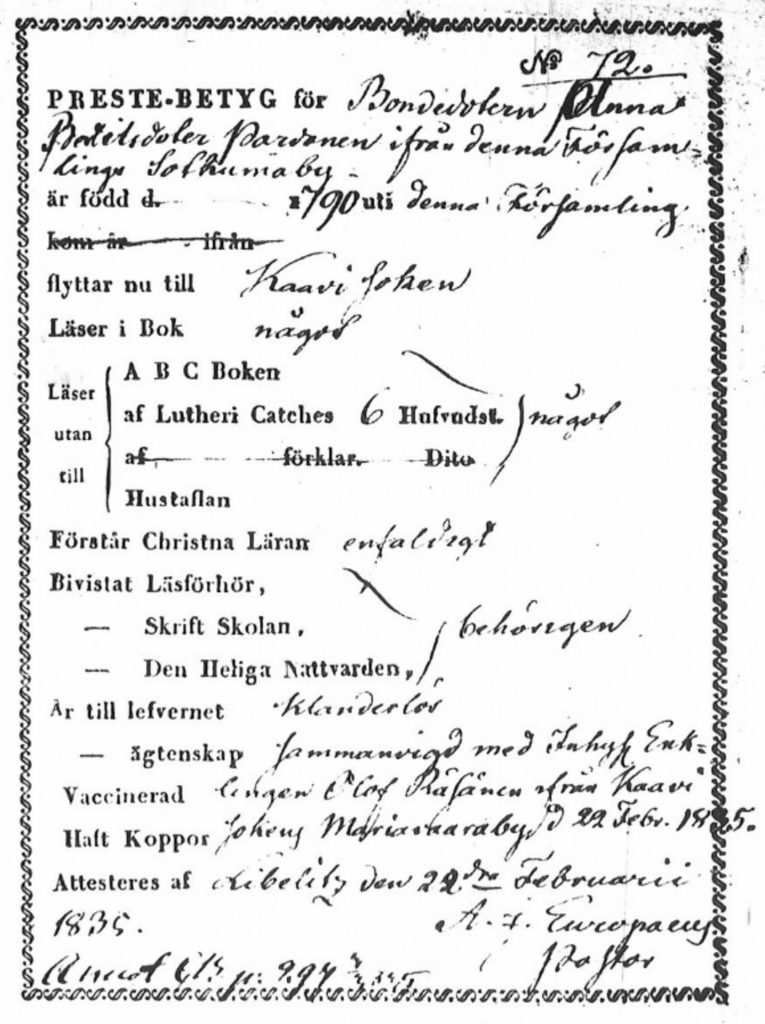 No 72.
PRESTE-BETYG för Bondedotern Anna
Bertilsdoter Pardonen ifrån denna Försam-
lings Sotkumaby
är född d. 1790 uti denna Församling.
kom år ifrån
flyttar nu till Kaavi Soken
Läser i Bok något
Läser utan till
A B C Boken
af Lutheri Catches 6 Hufvudst. något
af förklar. Dito
Hustaflan
Förstår Christna Läran enfaldigt
Bivistat Läsförhör,
— Skrift Skolan, behörigen
— Den Heliga Nattvarden,
Är till lefvernet Klanderlös
— ägtenskap sammanvigd med Inhys Enk-
Vaccinerad lingen Olof Räsänen ifrån Kaavi
Haft Koppor Sokens d 22 Febr. 1835.
Attesteres af Libelitz den 22dra Februarii
1835. A. J. Europaeus
Pastor
p. 297